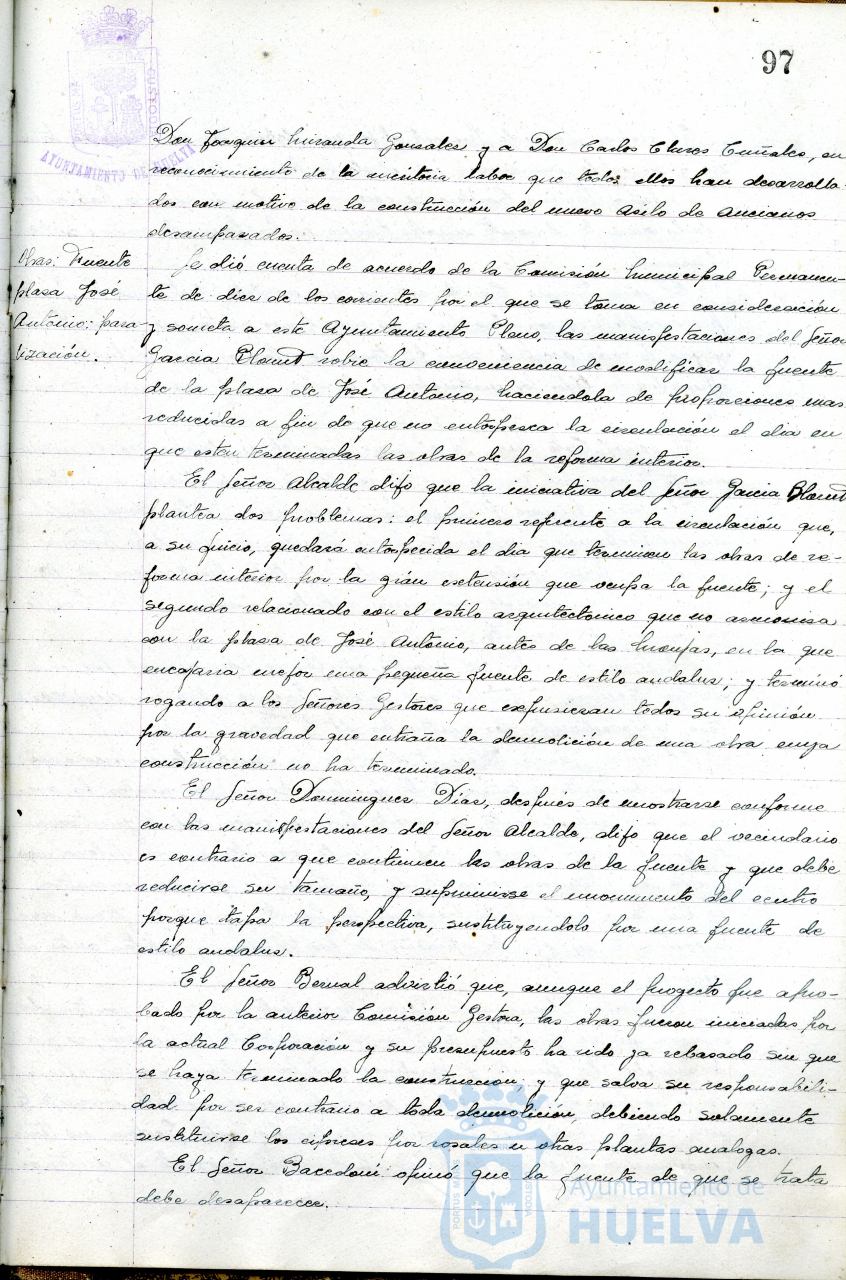 97
AYUNTAMIENTO DE HUELVA
Don Joaquin Miranda Gonzalez y a Don Carlos, en
reconocimiento de la meritoria labor que todos ellos han desarrolla-
dos con motivo de la construcción del nuevo Asilo de Ancianos
desamparados.
Obras: Fuente
plaza José
Antonio: para
lización.
Se dió cuenta de acuerdo de la Comisión Municipal Permanen-
te de diez de los corrientes por el que se toma en consideración
y someta a este Ayuntamiento Pleno, las manifestaciones del Señor
Garcia sobre la conveniencia de modificar la fuente
de la plaza de José Antonio, haciendola de proporciones mas
reducidas a fin de que no entorpezca la circulación el dia en
que esten terminadas las obras de la reforma interior.
El Señor Alcalde dijo que la iniciativa del Señor Garcia
plantea dos problemas: el primero referente a la circulación que,
a su juicio, quedará entorpecida el dia que terminen las obras de re-
forma interior por la gran extensión que ocupa la fuente; y el
segundo relacionado con el estilo arquitectonico que no armoniza
con la plaza de José Antonio, antes de las Monjas, en la que
encajaria mejor una pequeña fuente de estilo andaluz; y terminó
rogando a los Señores Gestores que expusieran todos su opinión
por la gravedad que entraña la demolición de una obra cuya
construcción no ha terminado.
El Señor Dominguez Diaz, después de mostrarse conforme
con las manifestaciones del Señor Alcalde, dijo que el vecindario
es contrario a que continuen las obras de la fuente y que debe
reducirse su tamaño, y suprimirse el monumento del centro
porque tapa la perspectiva, sustituyendolo por una fuente de
estilo andaluz.
El Señor Bernal advirtió que, aunque el proyecto fue apro-
bado por la anterior Comisión Gestora, las obras fueron iniciadas por
la actual Corporación y su presupuesto ha sido ya rebasado sin que
se haya terminado la construccion, y que salva su responsabili-
dad por ser contrario a toda demolición, debiendo solamente
sustituirse los cipreses por rosales u otras plantas analogas.
El Señor opinó que la fuente de que se trata
debe desaparecer.
Ayuntamiento de
HUELVA